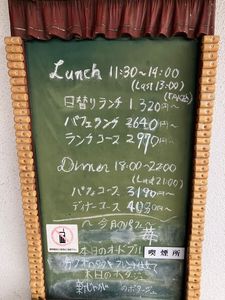 Lunch 11:30~14:00
(Last 13:00)
日替りランチ 1.320円~
パフェランチ 2640円~
ランチコース 2970円~
Dinner 18:00~22:00
(Last 21:00)
パフェコース 3190円~
ディナーコース 4030円~
~今月のパフェ~
本日のオードブル
喫煙所
本日のポタージュ
新じゃがのポタージュ